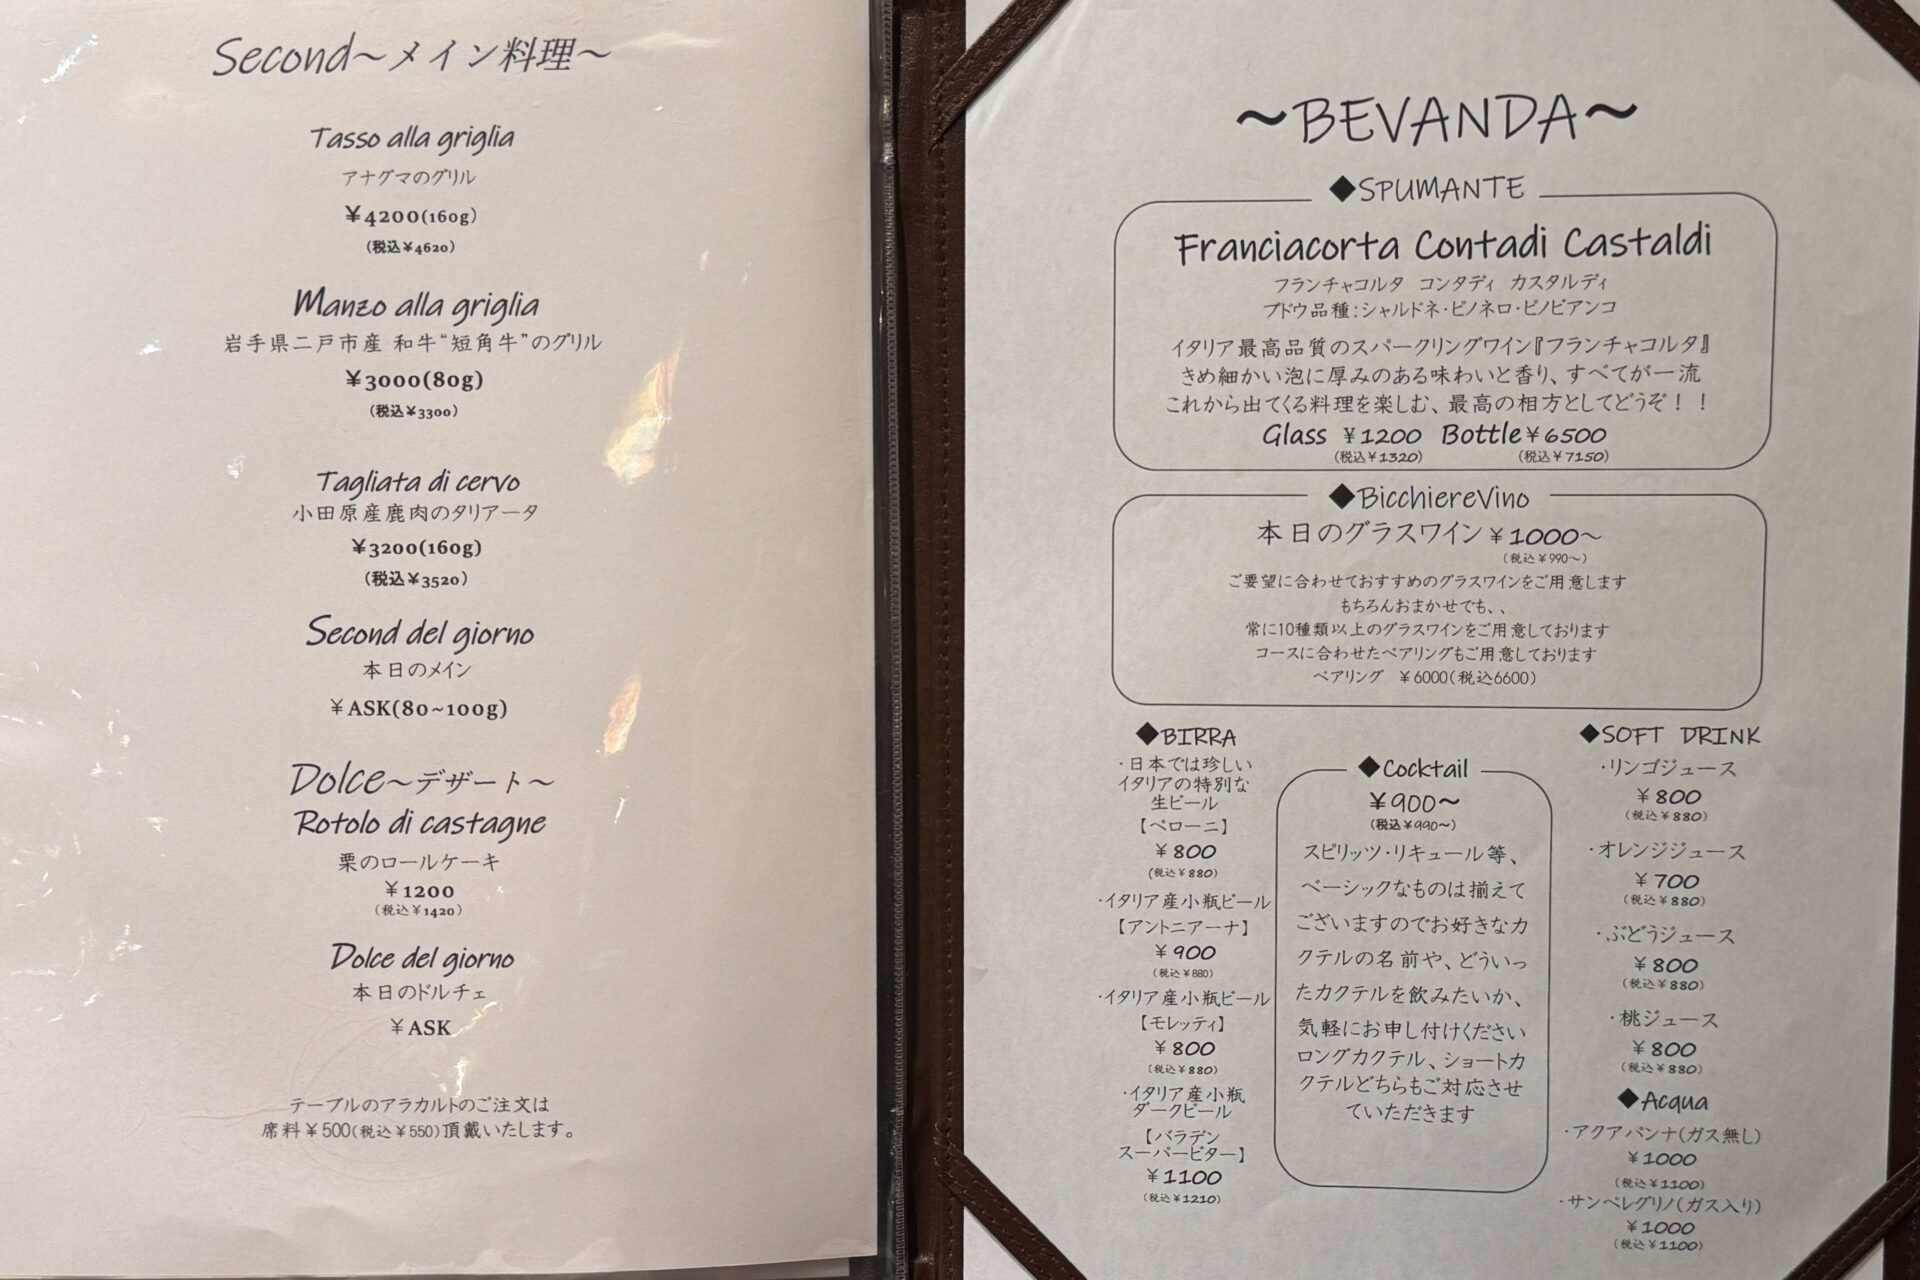 Second～メイン料理～
Tasso alla griglia
アナグマのグリル
￥4200(160g)
(税込￥4620)
Manzo alla griglia
岩手県二戸市産 和牛“短角牛”のグリル
￥3000(80g)
(税込￥3300)
Tagliata di cervo
小田原産鹿肉のタリアータ
￥3200(160g)
(税込￥3520)
Second del giorno
本日のメイン
￥ASK(80~100g)
Dolce～デザート～
Rotolo di castagne
栗のロールケーキ
￥1200
(税込￥1420)
Dolce del giorno
本日のドルチェ
￥ASK
テーブルのアラカルトのご注文は
席料￥500(税込￥550)頂戴いたします。
～BEVANDA～
◆SPUMANTE
Franciacorta Contadi Castaldi
フランチャコルタ コンタディ カスタルディ
ブドウ品種:シャルドネ・ピノネロ・ピノビアンコ
イタリア最高品質のスパークリングワイン『フランチャコルタ』
きめ細かい泡に厚みのある味わいと香り、すべてが一流
これから出てくる料理を楽しむ、最高の相方としてどうぞ！！
Glass ￥1200 Bottle￥6500
(税込￥1320) (税込￥7150)
◆BicchiereVino
本日のグラスワイン￥1000～
(税込￥990～)
ご要望に合わせておすすめのグラスワインをご用意します
もちろんおまかせでも、、
常に10種類以上のグラスワインをご用意しております
コースに合わせたペアリングもご用意しております
ペアリング ￥6000(税込6600)
◆BIRRA
・日本では珍しい
イタリアの特別な
生ビール
【ペローニ】
￥800
(税込￥880)
・イタリア産小瓶ビール
【アントニアーナ】
￥900
(税込￥880)
・イタリア産小瓶ビール
【モレッティ】
￥800
(税込￥880)
・イタリア産小瓶
ダークビール
【バラデン
スーパービター】
￥1100
(税込￥1210)
◆Cocktail
￥900～
(税込￥990～)
スピリッツ・リキュール等、
ベーシックなものは揃えて
ございますのでお好きなカ
クテルの名前や、どういっ
たカクテルを飲みたいか、
気軽にお申し付けください
ロングカクテル、ショートカ
クテルどちらもご対応させ
ていただきます
◆SOFT DRINK
・リンゴジュース
￥800
(税込￥880)
・オレンジジュース
￥700
(税込￥880)
・ぶどうジュース
￥800
(税込￥880)
・桃ジュース
￥800
(税込￥880)
◆Acqua
・アクアパンナ(ガス無し)
￥1000
(税込￥1100)
・サンペレグリノ(ガス入り)
￥1000
(税込￥1100)